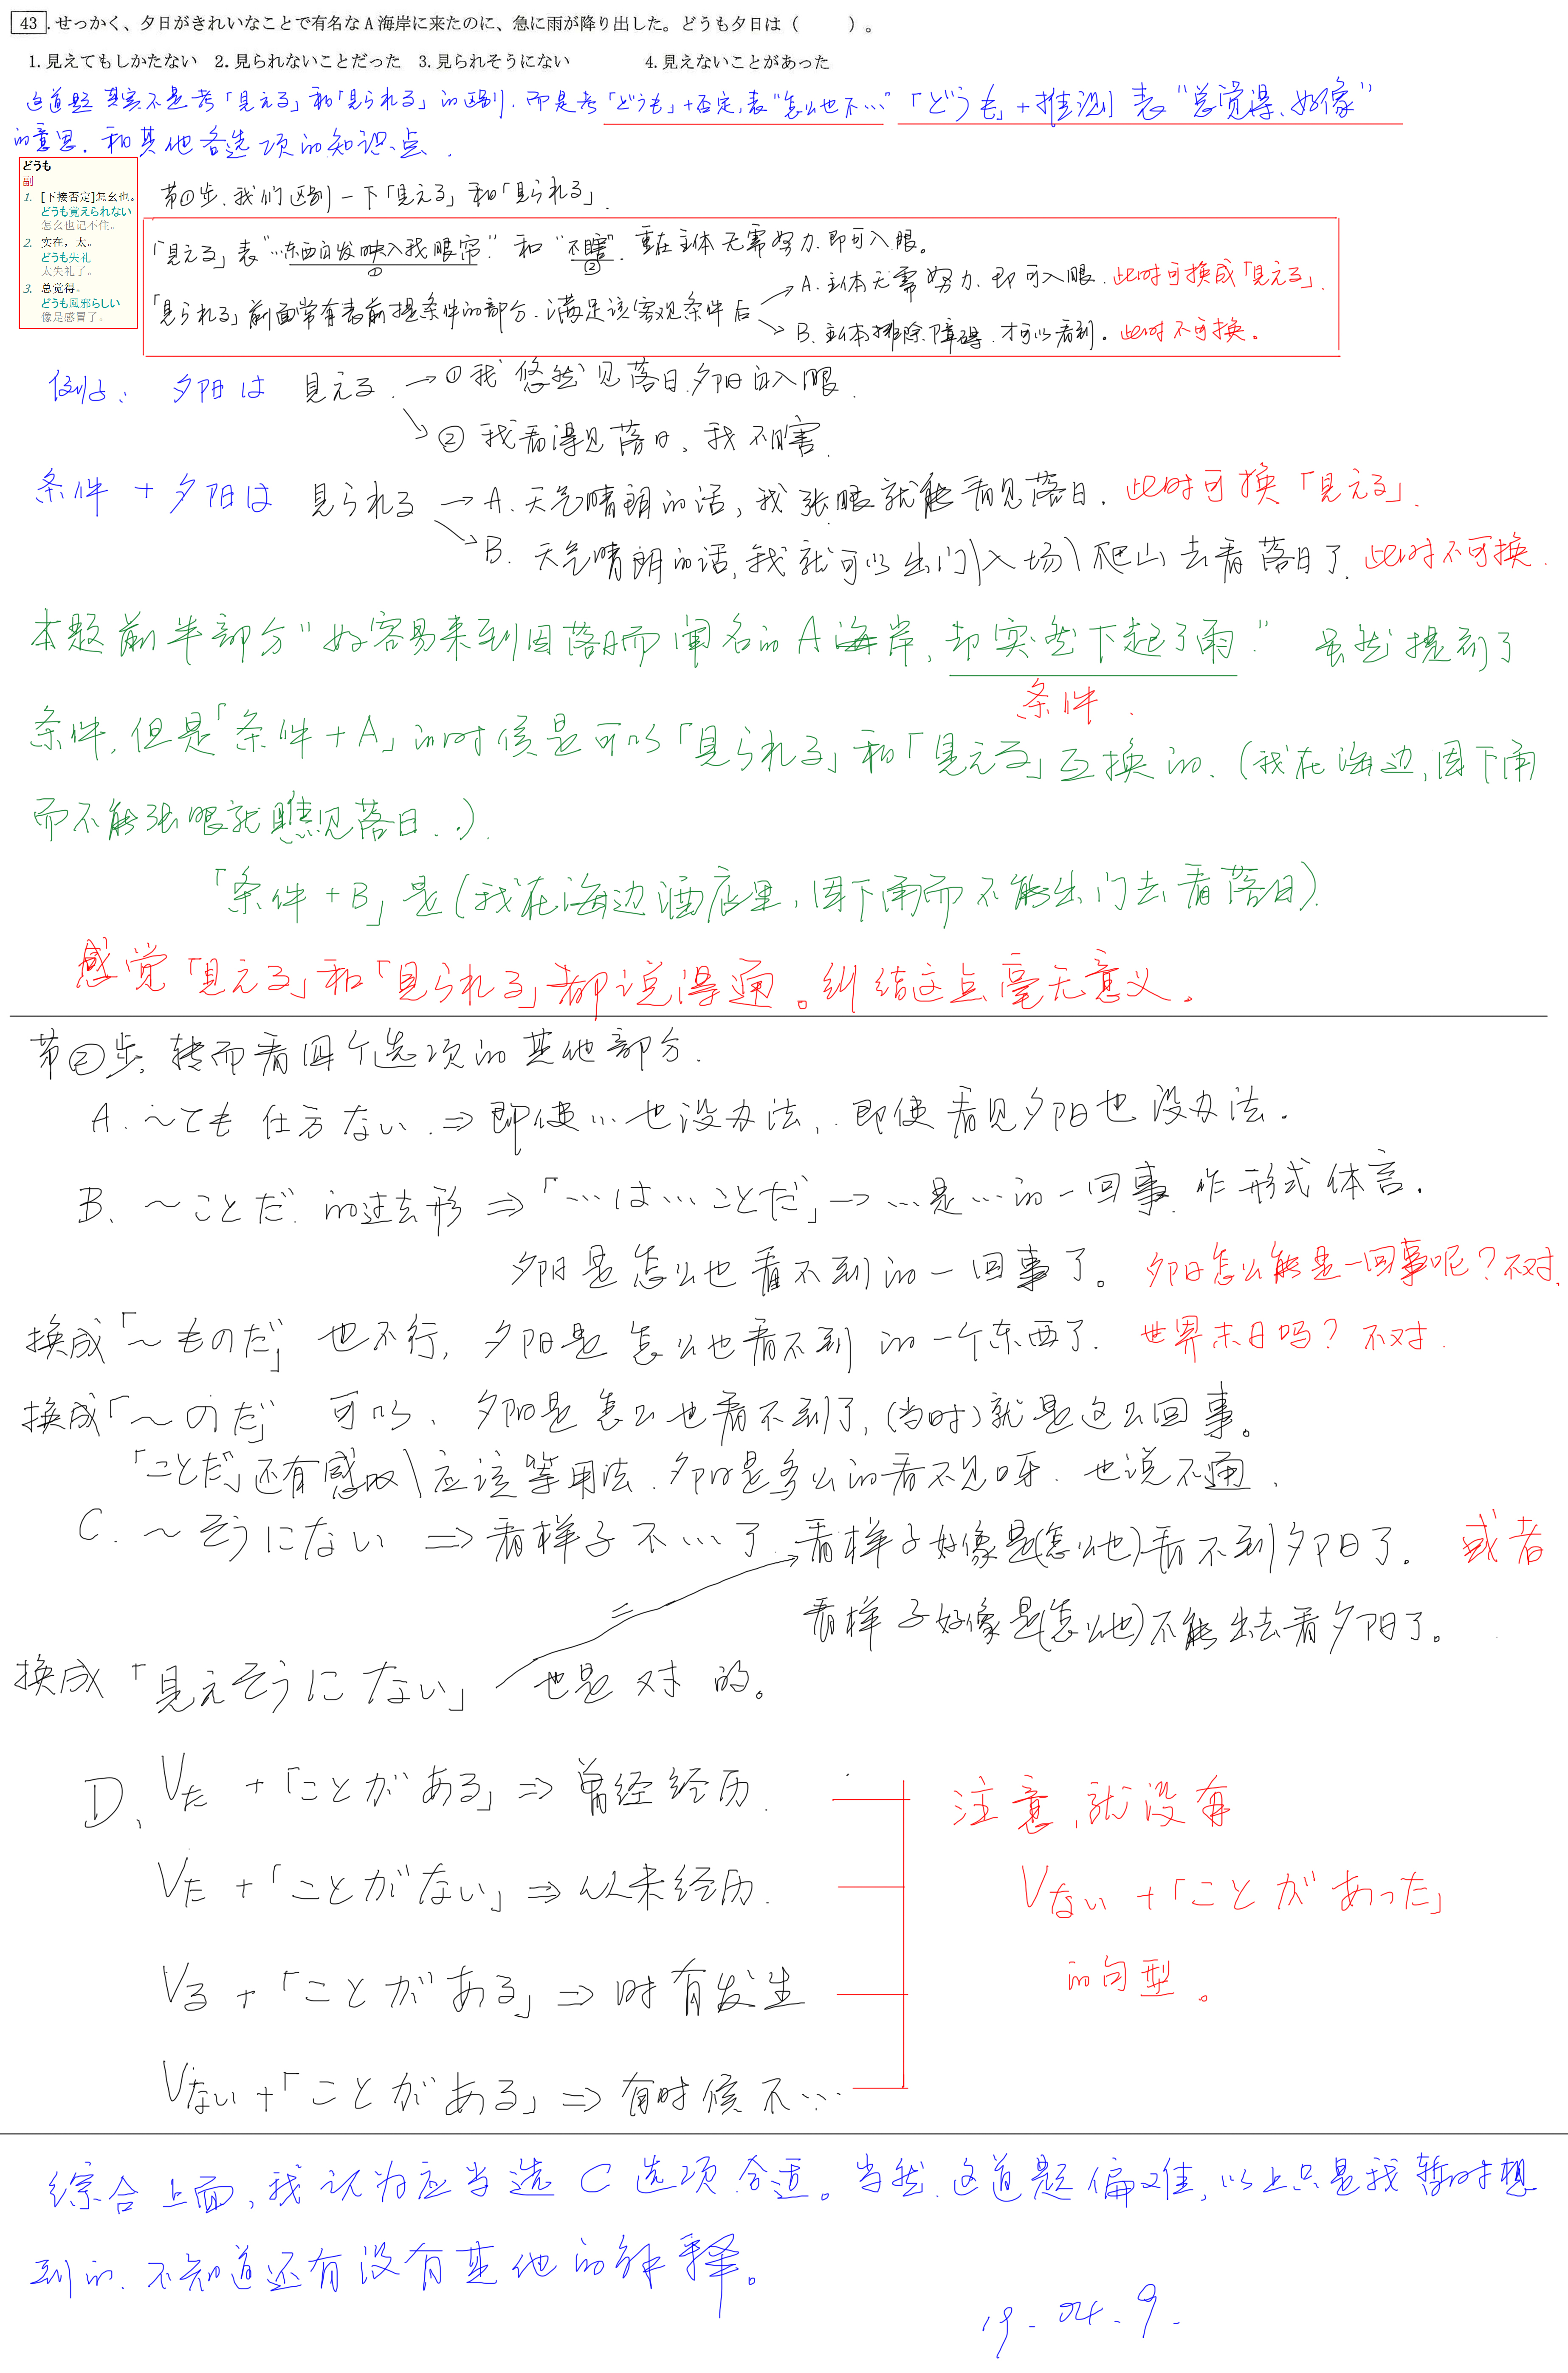 43.せっかく、夕日がきれいなことで有名なA海岸に来たのに、急に雨が降り出した。どうも夕日は（　　　）。
1.見えてもしかたない　2.見られないことだった　3.見られそうにない　4.見えないことがあった
这道题其实不是考「見える」和「見られる」的区别.而是考「どうも」+否定,表“怎么也不…”「どうも」+推测 表“总觉得、好像”
的意思.和其他各选项的知识点.
どうも
副
1. [下接否定]怎么也。
どうも覚えられない
怎么也记不住。
2. 实在，太。
どうも失礼
太失礼了。
3. 总觉得。
どうも風邪らしい
像是感冒了。
第①步.我们区别一下「見える」和「見られる」.
「見える」表“…东西自发映入我眼帘”和“不瞎”.重在主体无需努力.即可入眼。
① ②
「見られる」前面常有表前提条件的部分.满足该客观条件后
A.主体无需努力.即可入眼.此时可换成「見える」.
B.主体排除障碍.才可以看到。此时不可换。
例子: 夕阳は 見える.→①我悠然见落日.夕阳自入眼.
②我看得见落日、我不瞎.
条件 + 夕阳は 見られる → A.天气晴朗的话,我张眼就能看见落日.此时可换「見える」.
B. 天气晴朗的话,我就可以出门\入场\爬山去看落日了.此时不可换.
本题前半部分“好容易来到因落日而闻名的A海岸,却突然下起了雨.”虽然提到了
条件.
条件,但是「条件+A」的时候是可以「見られる」和「見える」互换的.(我在海边,因下雨
而不能张眼就瞧见落日..).
「条件+B」是(我在海边酒店里,因下雨而不能出门去看落日).
感觉「見える」和「見られる」都说得通。纠结这点毫无意义。
第②步,转而看四个选项的其他部分.
A.～ても 仕方ない.⇒即使…也没办法,.即使看见夕阳也没办法.
B.～ことだ.的过去形⇒「…は…ことだ」→…是…的一回事.作形式体言.
夕阳是怎么也看不到的一回事了。夕阳怎么能是一回事呢?不对.
换成「～ものだ」也不行,夕阳是怎么也看不到的一个东西了.世界末日吗?不对.
换成「～のだ」可以、夕阳是怎么也看不到了,(当时)就是这么回事。
「ことだ」还有感叹\应该等用法.夕阳是多么的看不见呀.也说不通.
C.～そうにない⇒看样子不…了.看样子好像是(怎么也)看不到夕阳了。或者
看样子好像是(怎么也)不能出去看夕阳了。
换成「見えそうにない」也是对的。
D、Vた+「ことがある」⇒曾经经历.
Vた+「ことがない」⇒从未经历.
Vる+「ことがある」⇒时有发生
Vない+「ことがある」⇒有时候不…
注意,就没有
Vない+「ことがあった」
的句型。
综合上面,我认为应当选C选项合适。当然.这道题偏难,以上只是我暂时想
到的.不知道还有没有其他的解释。
19.04.9.